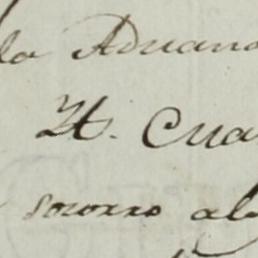 la Aduana
H. Cua
socorro al